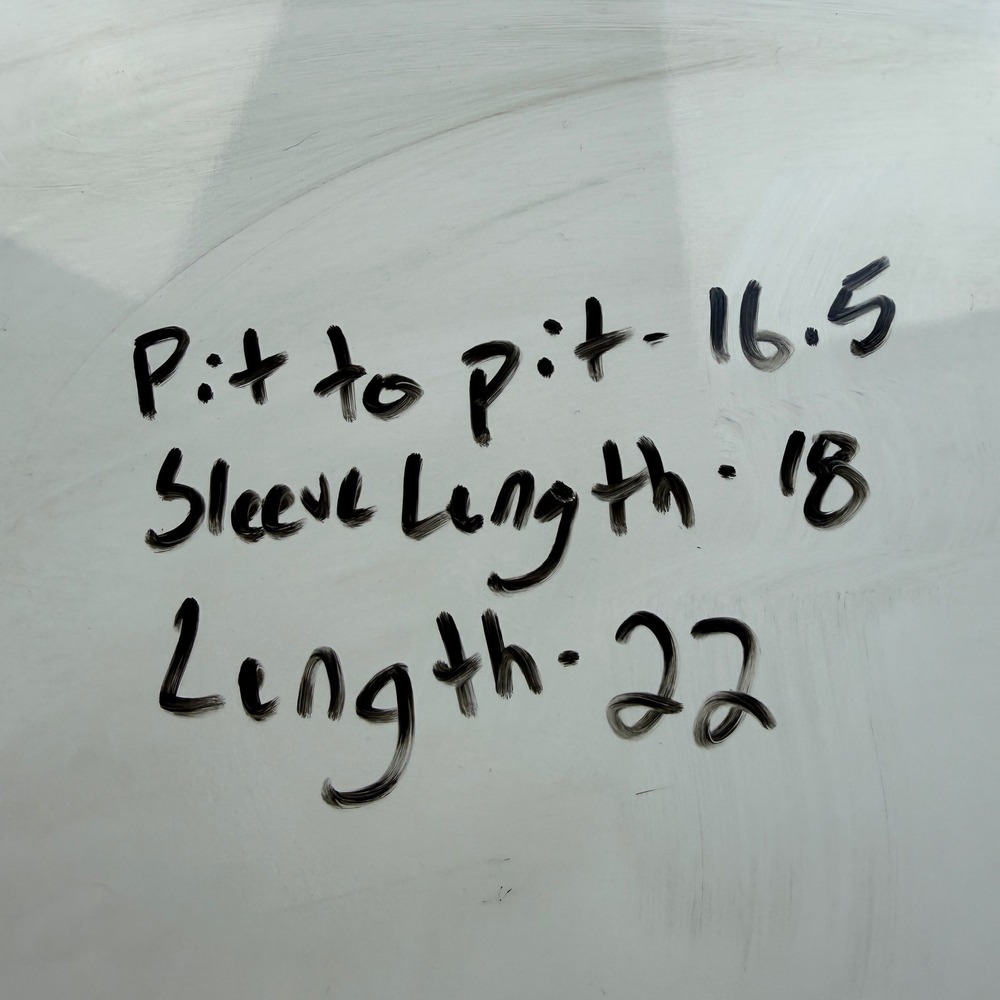 Pit to pit - 16.5
Sleeve Length - 18
Length - 22